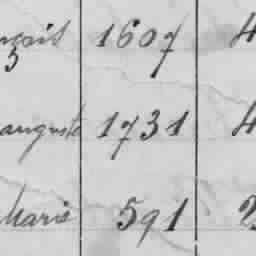 nçois 1607 4
auguste 1731 4
Marie 591 2